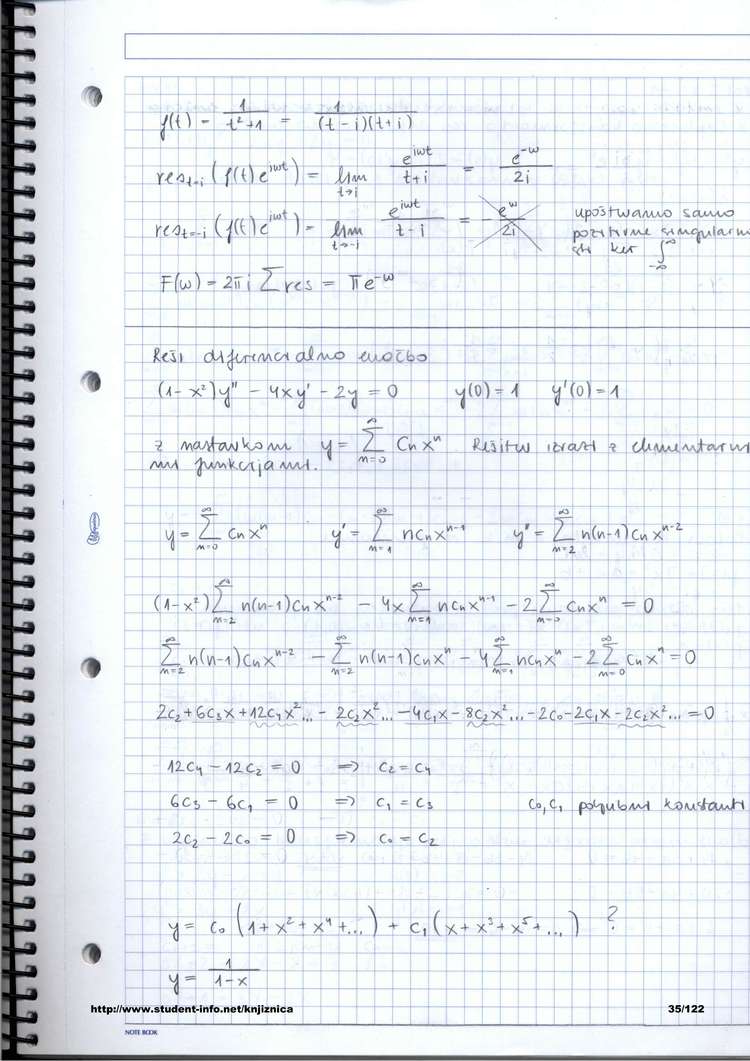 f(t) = 1/(t²+1) = 1/((t-i)(t+i))
res_{t=i} (f(t) e^{iωt}) = lim_{t→i} e^{iωt}/(t+i) = e^{-ω}/2i
res_{t=-i} (f(t) e^{iωt}) = lim_{t→-i} e^{iωt}/(t-i) = - e^{ω}/2i upoštevamo samo
pozitivne singularno
sti ker ∫_{-∞}^{∞}
F(ω) = 2πi ∑ res = π e^{-ω}
Reši diferencialno enačbo
(1-x²)y'' - 4xy' - 2y = 0 y(0) = 1 y'(0) = 1
z nastavkom y = ∑_{n=0}^{∞} Cn xⁿ Rešitev izrazi z elementarni
mi funkcijami.
y = ∑_{n=0}^{∞} Cn xⁿ y' = ∑_{n=1}^{∞} nCn x^{n-1} y'' = ∑_{n=2}^{∞} n(n-1)Cn x^{n-2}
(1-x²) ∑_{n=2}^{∞} n(n-1)Cn x^{n-2} - 4x ∑_{n=1}^{∞} nCn x^{n-1} - 2 ∑_{n=0}^{∞} Cn xⁿ = 0
∑_{n=2}^{∞} n(n-1)Cn x^{n-2} - ∑_{n=2}^{∞} n(n-1)Cn xⁿ - 4 ∑_{n=1}^{∞} nCn xⁿ - 2 ∑_{n=0}^{∞} Cn xⁿ = 0
2C₂ + 6C₃x + 12C₄x² ... - 2C₂x² ... - 4C₁x - 8C₂x² ... - 2C₀ - 2C₁x - 2C₂x² ... = 0
12C₄ - 12C₂ = 0 => C₂ = C₄
6C₃ - 6C₁ = 0 => C₁ = C₃ C₀, C₁ poljubni konstanti
2C₂ - 2C₀ = 0 => C₀ = C₂
y = C₀ (1 + x² + x⁴ + ...) + C₁ (x + x³ + x⁵ + ...) ?
y = 1/(1-x)
http://www.student-info.net/knjiznica 35/122
NOTE BOOK